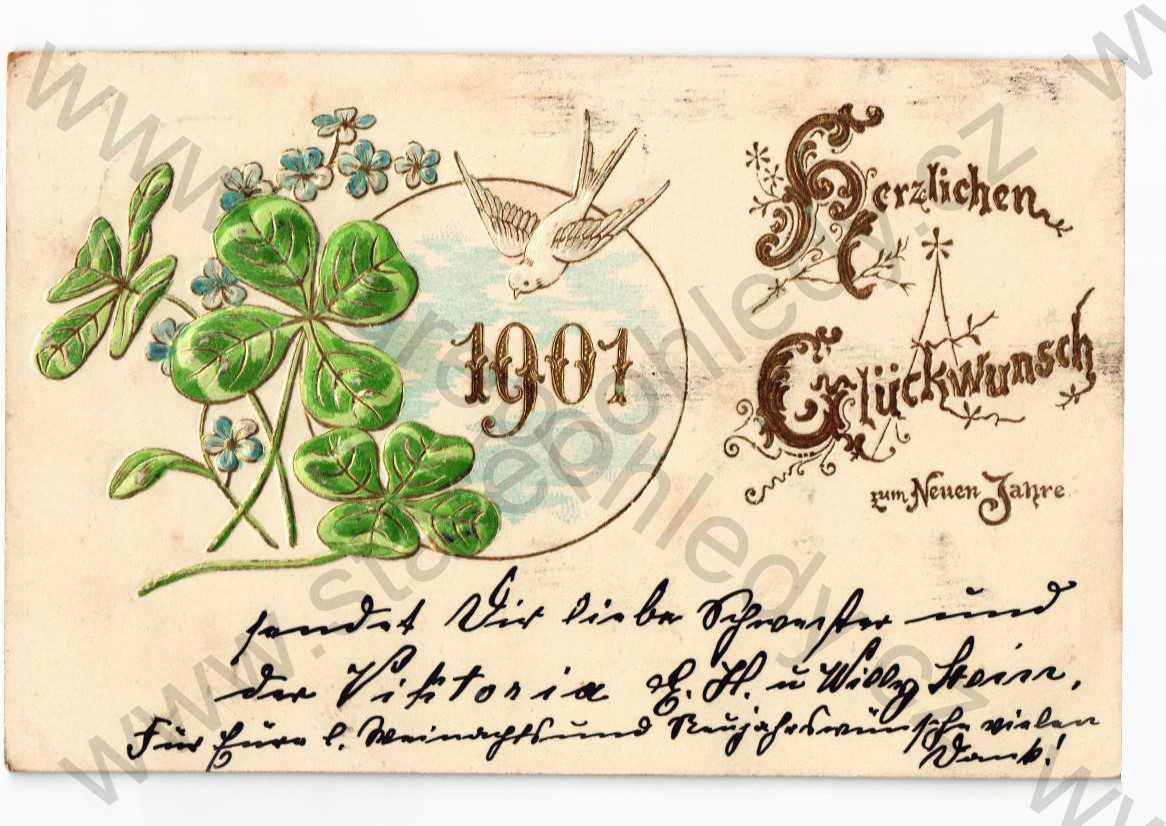 1901
Herzlichen
Glückwunsch
zum Neuen Jahre
sendet Dir liebe Schwester und
der Viktoria E. H. u Willy Stein.
Für Eure l. Weinachts und Neujahrswünsche vielen
Dank!
www.starepohledy.cz
www.starepohledy.cz